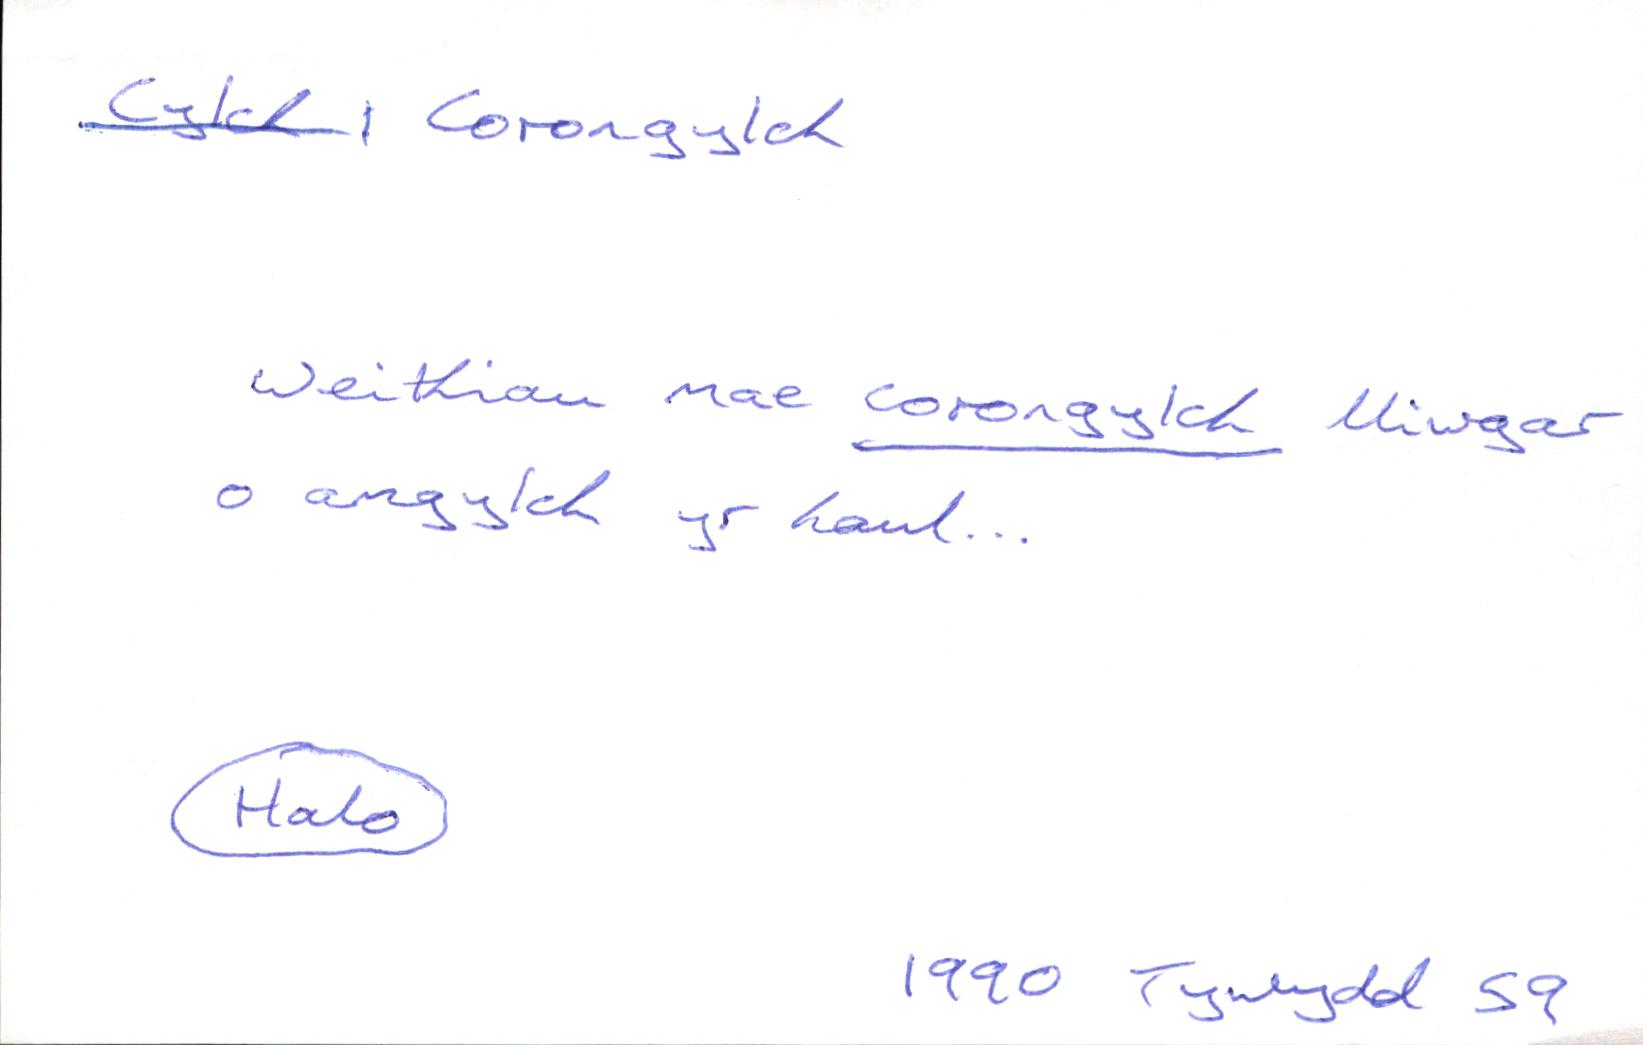 Cylch | Corongylch
Weithiau mae corongylch lliwgar
o amgylch yr haul...
Halo
1990 Tywydd 59